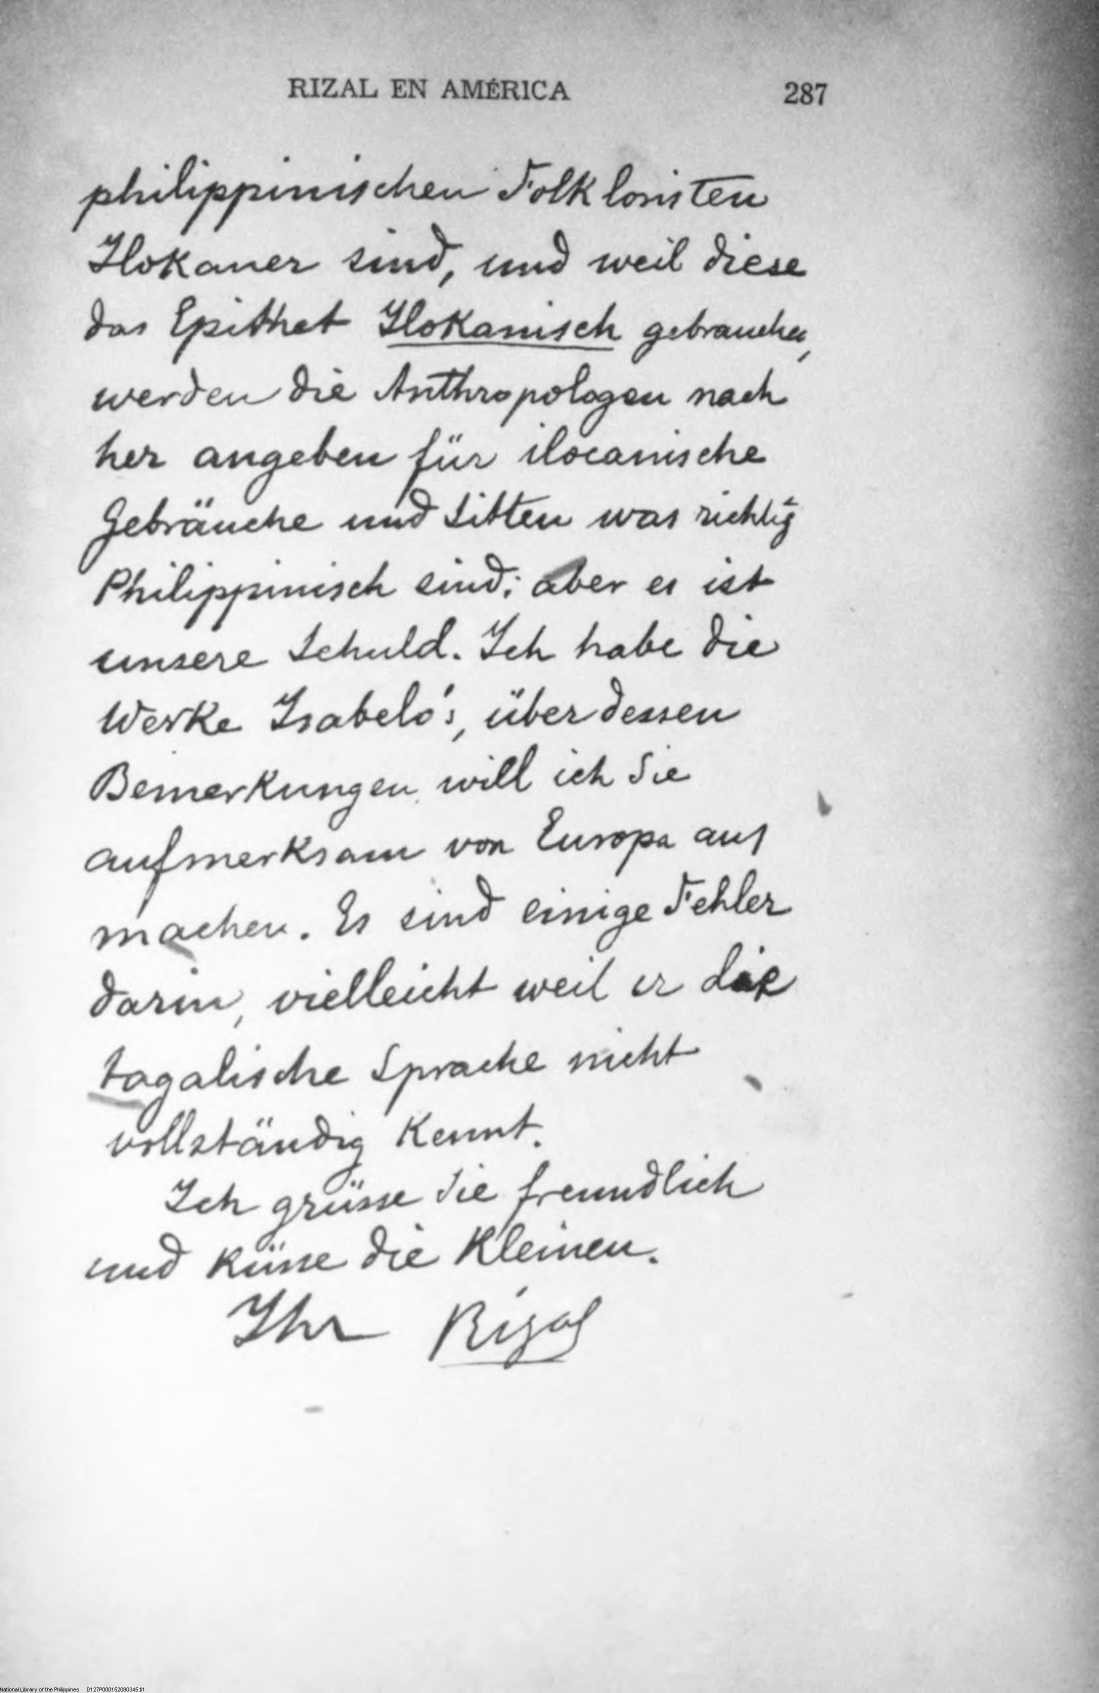 RIZAL EN AMÉRICA 287
philippinischen Folkloristen
Ilokaner sind, und weil diese
das Epithet Ilokanisch gebrauchen,
werden die Anthropologen nach
her angeben für ilocanische
Gebräuche und Sitten was richtig
Philippinisch sind; aber es ist
unsere Schuld. Ich habe die
Werke Isabelo's, über dessen
Bemerkungen will ich Sie
aufmerksam von Europa aus
machen. Es sind einige Fehler
darin, vielleicht weil er die
tagalische Sprache nicht
vollständig kennt.
Ich grüsse Sie freundlich
und küsse die Kleinen.
Ihr Rizal
National Library of the Philippines